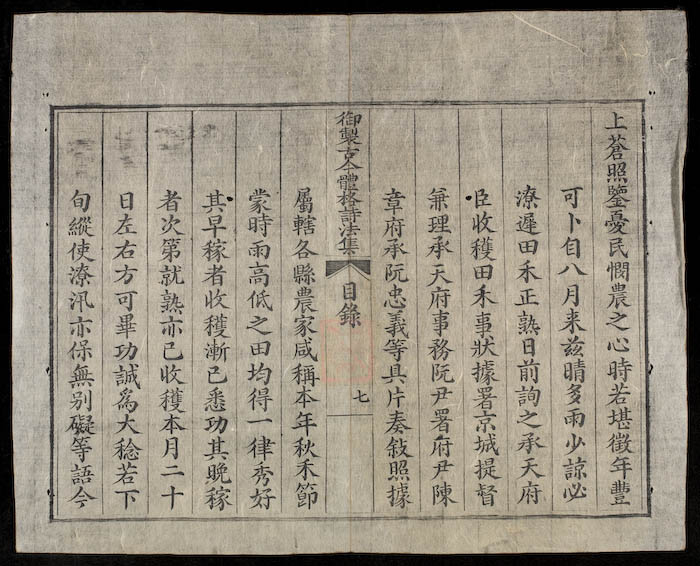 上蒼照鑒憂民憫農之心時若堪徵年豐
可卜自八月来茲晴多雨少諒必
潦遲田禾正熟日前詢之承天府
臣收穫田禾事狀據署京城提督
兼理承天府事務阮尹署府尹陳
章府承阮忠義等具片奏敍照據
御製古今體格詩法集
目錄
七
屬轄各縣農家咸稱本年秋禾節
蒙時雨高低之田均得一律秀好
其早稼者收穫漸已悉功其晚稼
者次第就熟亦已收穫本月二十
日左右方可畢功誠爲大稔若下
旬縱使潦汛亦保無别礙等語今